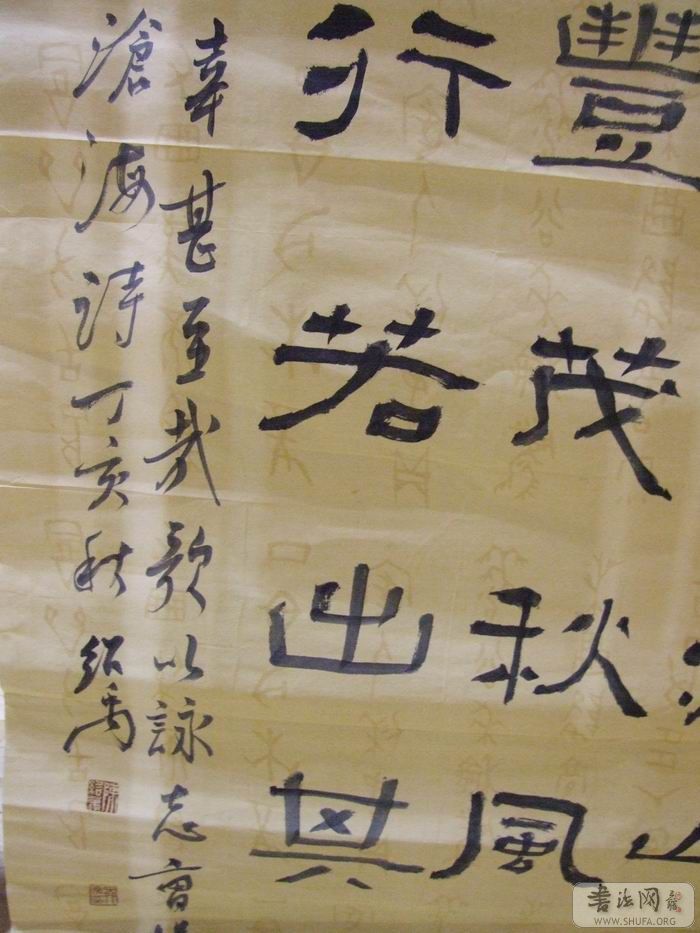 豐茂秋風
行若出其
幸甚至哉歌以詠志曹
滄海詩丁亥秋紹禹
書法网
WWW.SHUFA.ORG